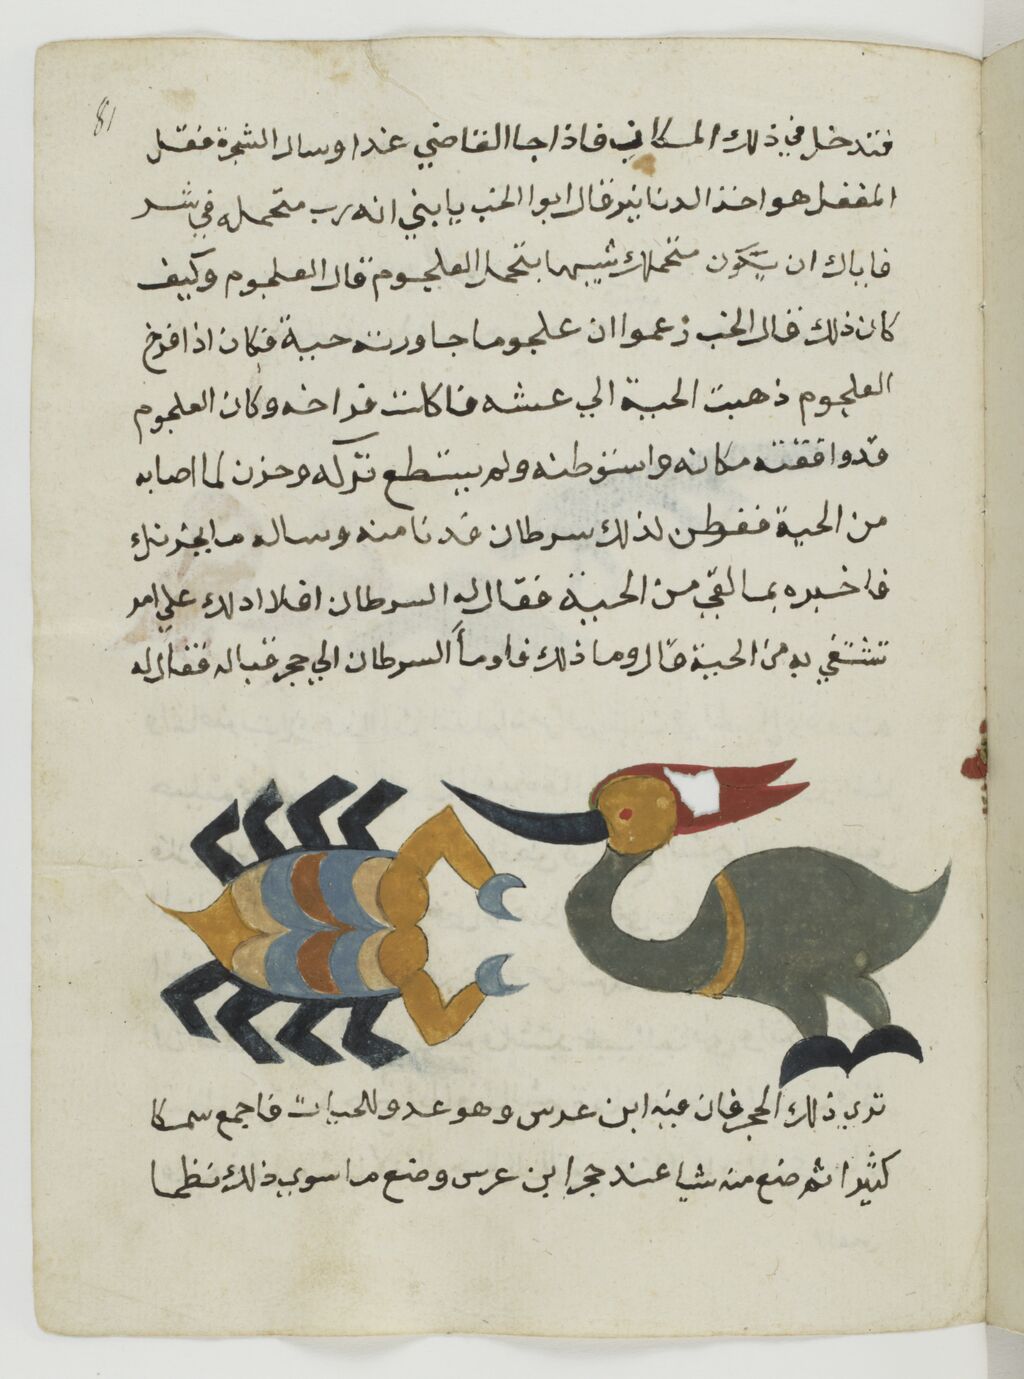 81
فتدخل في ذلك المكان فاذا جا القاضي غدا وسال الشجرة فقل
المغفل هو اخذ الدنانير فقال ابوا الخب يا بني انه رب متحمله في شد
فاياك ان يكون متحملك شبيها بتحمل العلجوم قال العلجوم وكيف
كان ذلك قال الخب زعموا ان علجوما جاورته حية فكان اذا افرخ
العلجوم ذهبت الحية الي عشه فاكلت فراخه وكان العلجوم
قد وافقته مكانه واستوطنه ولم يستطع تركه وحزن لما اصابه
من الحية ففطن لذلك سرطان فدنا منه وساله ما يحزنك
فاخبره بما لقي من الحية فقال له السرطان افلا ادلك علي امر
تشتفي به من الحية قال وما ذلك فاومأ السرطان الي جحر قباله فقال له
تري ذلك الجحر فان فيه ابن عرس وهو عدو للحيات فاجمع سمكا
كثيرا ثم ضع منه شيا عند جحر ابن عرس وضع ما سوي ذلك نظما